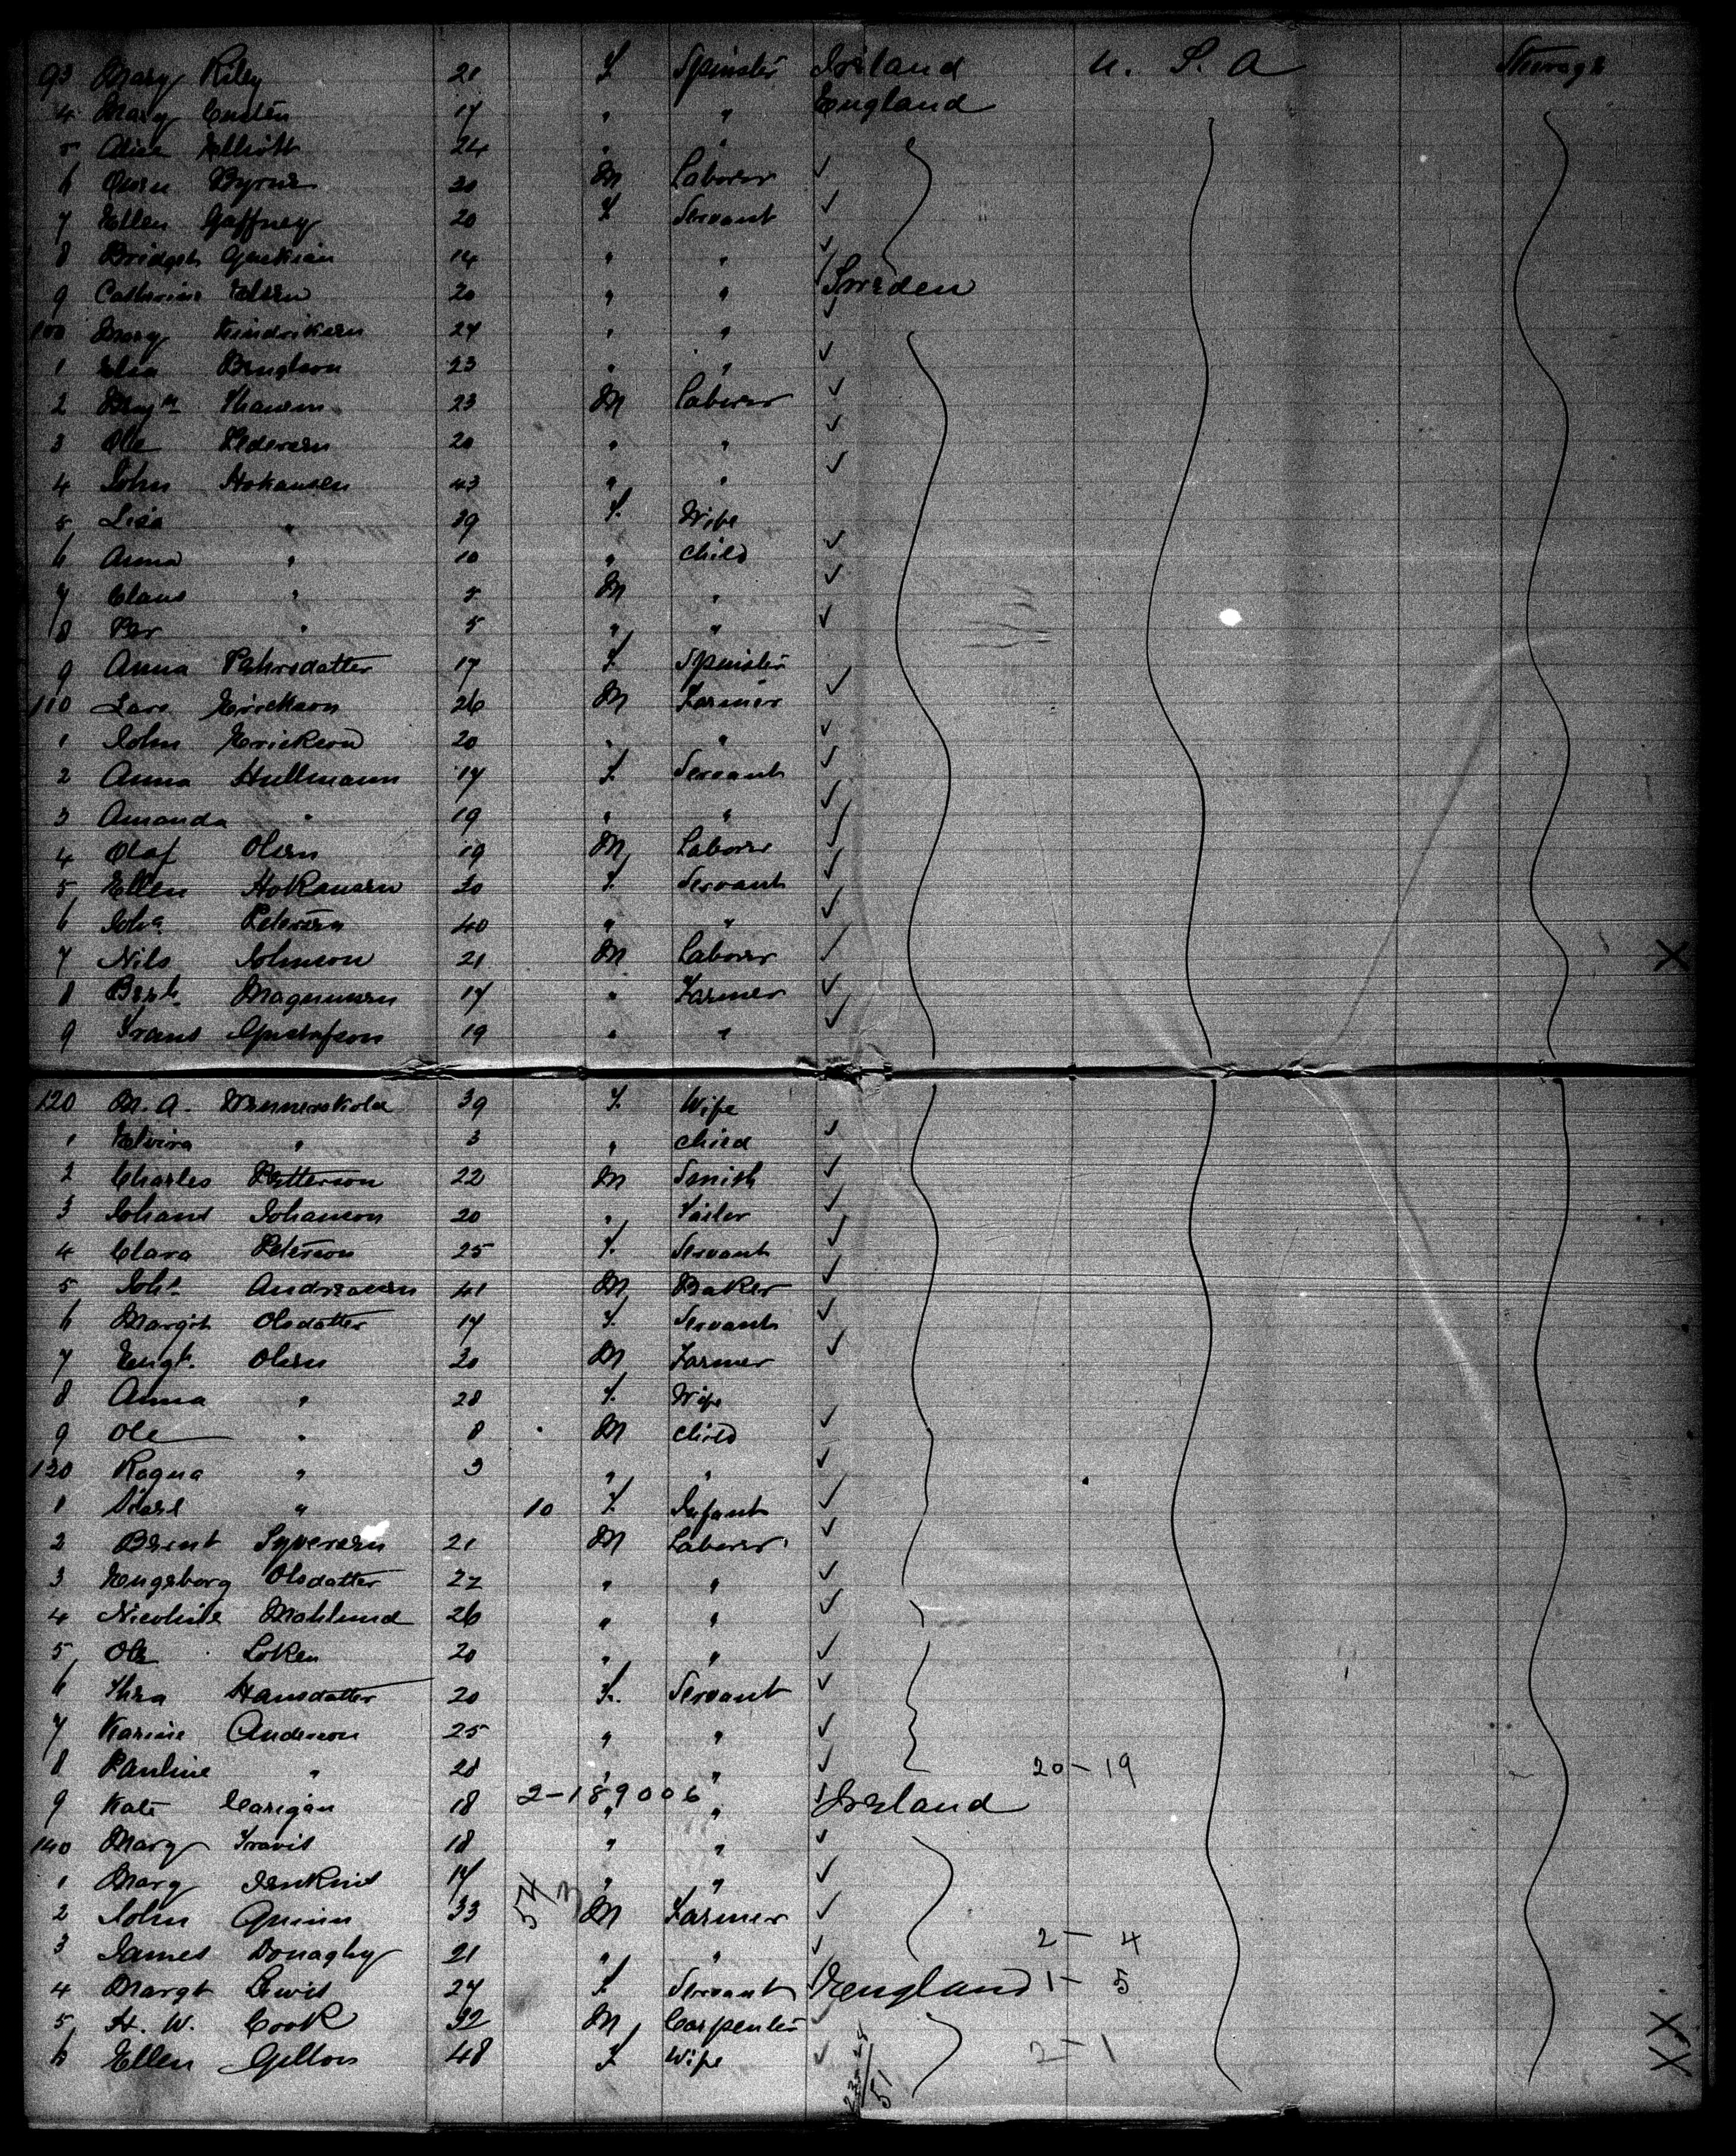 93 Mary Riley 21 F. Spinster Ireland U. S. A Steerage
4 Mary 17 " " England
5 Alice Elliott 24 " "
6 Owen Byrne 20 M Laborer ✓
7 Ellen Gaffney 20 F. Servant ✓
8 Bridget 14 " " ✓
9 Catherine Olsen 20 " " Sweden
100 Mary Hindriksen 24 " "
1 Elsa Bengtson 23 " " ✓
2 Hansen 23 M Laborer ✓
3 Ole Pedersen 20 " " ✓
4 John Hokansen 43 " " ✓
5 Lisa " 39 F. Wife
6 Anna " 10 " Child ✓
7 Claus " 8 M " ✓
8 Per " 5 " " ✓
9 Anna Pehrsdatter 17 F. Spinster
110 Lars Erickson 26 M Farmer ✓
1 John Erickson 20 " " ✓
2 Anna Hullmann 17 F. Servant ✓
3 Amanda " 19 " " ✓
4 Olaf Olsen 19 M Laborer ✓
5 Ellen Hokansen 20 F. Servant ✓
6 Petersen 40 " " ✓
7 Nils Johnson 21 M Laborer ✓ X
8 Magnusen 17 " Farmer ✓
9 Frans Gustafson 19 " " ✓
120 M. A. Wennerskold 39 F. Wife
1 Elvira " 3 " child ✓
2 Charles Petterson 22 M Smith ✓
3 Johans Johanson 20 " Tailor ✓
4 Clara Peterson 25 F. Servant ✓
5 Andreasen 41 M Baker ✓
6 Margit Olsdatter 17 F. Servant ✓
7 Engh. Olsen 30 M Farmer ✓
8 Anna " 28 F. Wife
9 Ole " 8 M child ✓
130 Ragna " 3 " " ✓
1 " 10 F. Infant ✓
2 Brent Syversen 21 M Laborer ✓
3 Engeborg Olsdatter 22 " " ✓
4 Mohlund 26 " " ✓
5 Ole Loken 20 " " ✓
6 Thea Hansdatter 20 F. Servant ✓
7 Karine Anderson 25 " " ✓
8 Pauline " 28 " " ✓ 20 - 19
9 Kate Carigan 18 2-189006 " " Ireland
140 Mary Travis 18 " " ✓
1 Mary Jenkins 17 " " ✓
2 John Quinn 33 M Farmer ✓
3 James Donaghy 21 " " ✓ 2 - 4
4 Margt Lewis 27 F. Servant England 1 - 5
5 H. W. Cook 32 M Carpenter ✓ X
6 Ellen Gillon 48 F. Wife ✓ 2 - 1 X